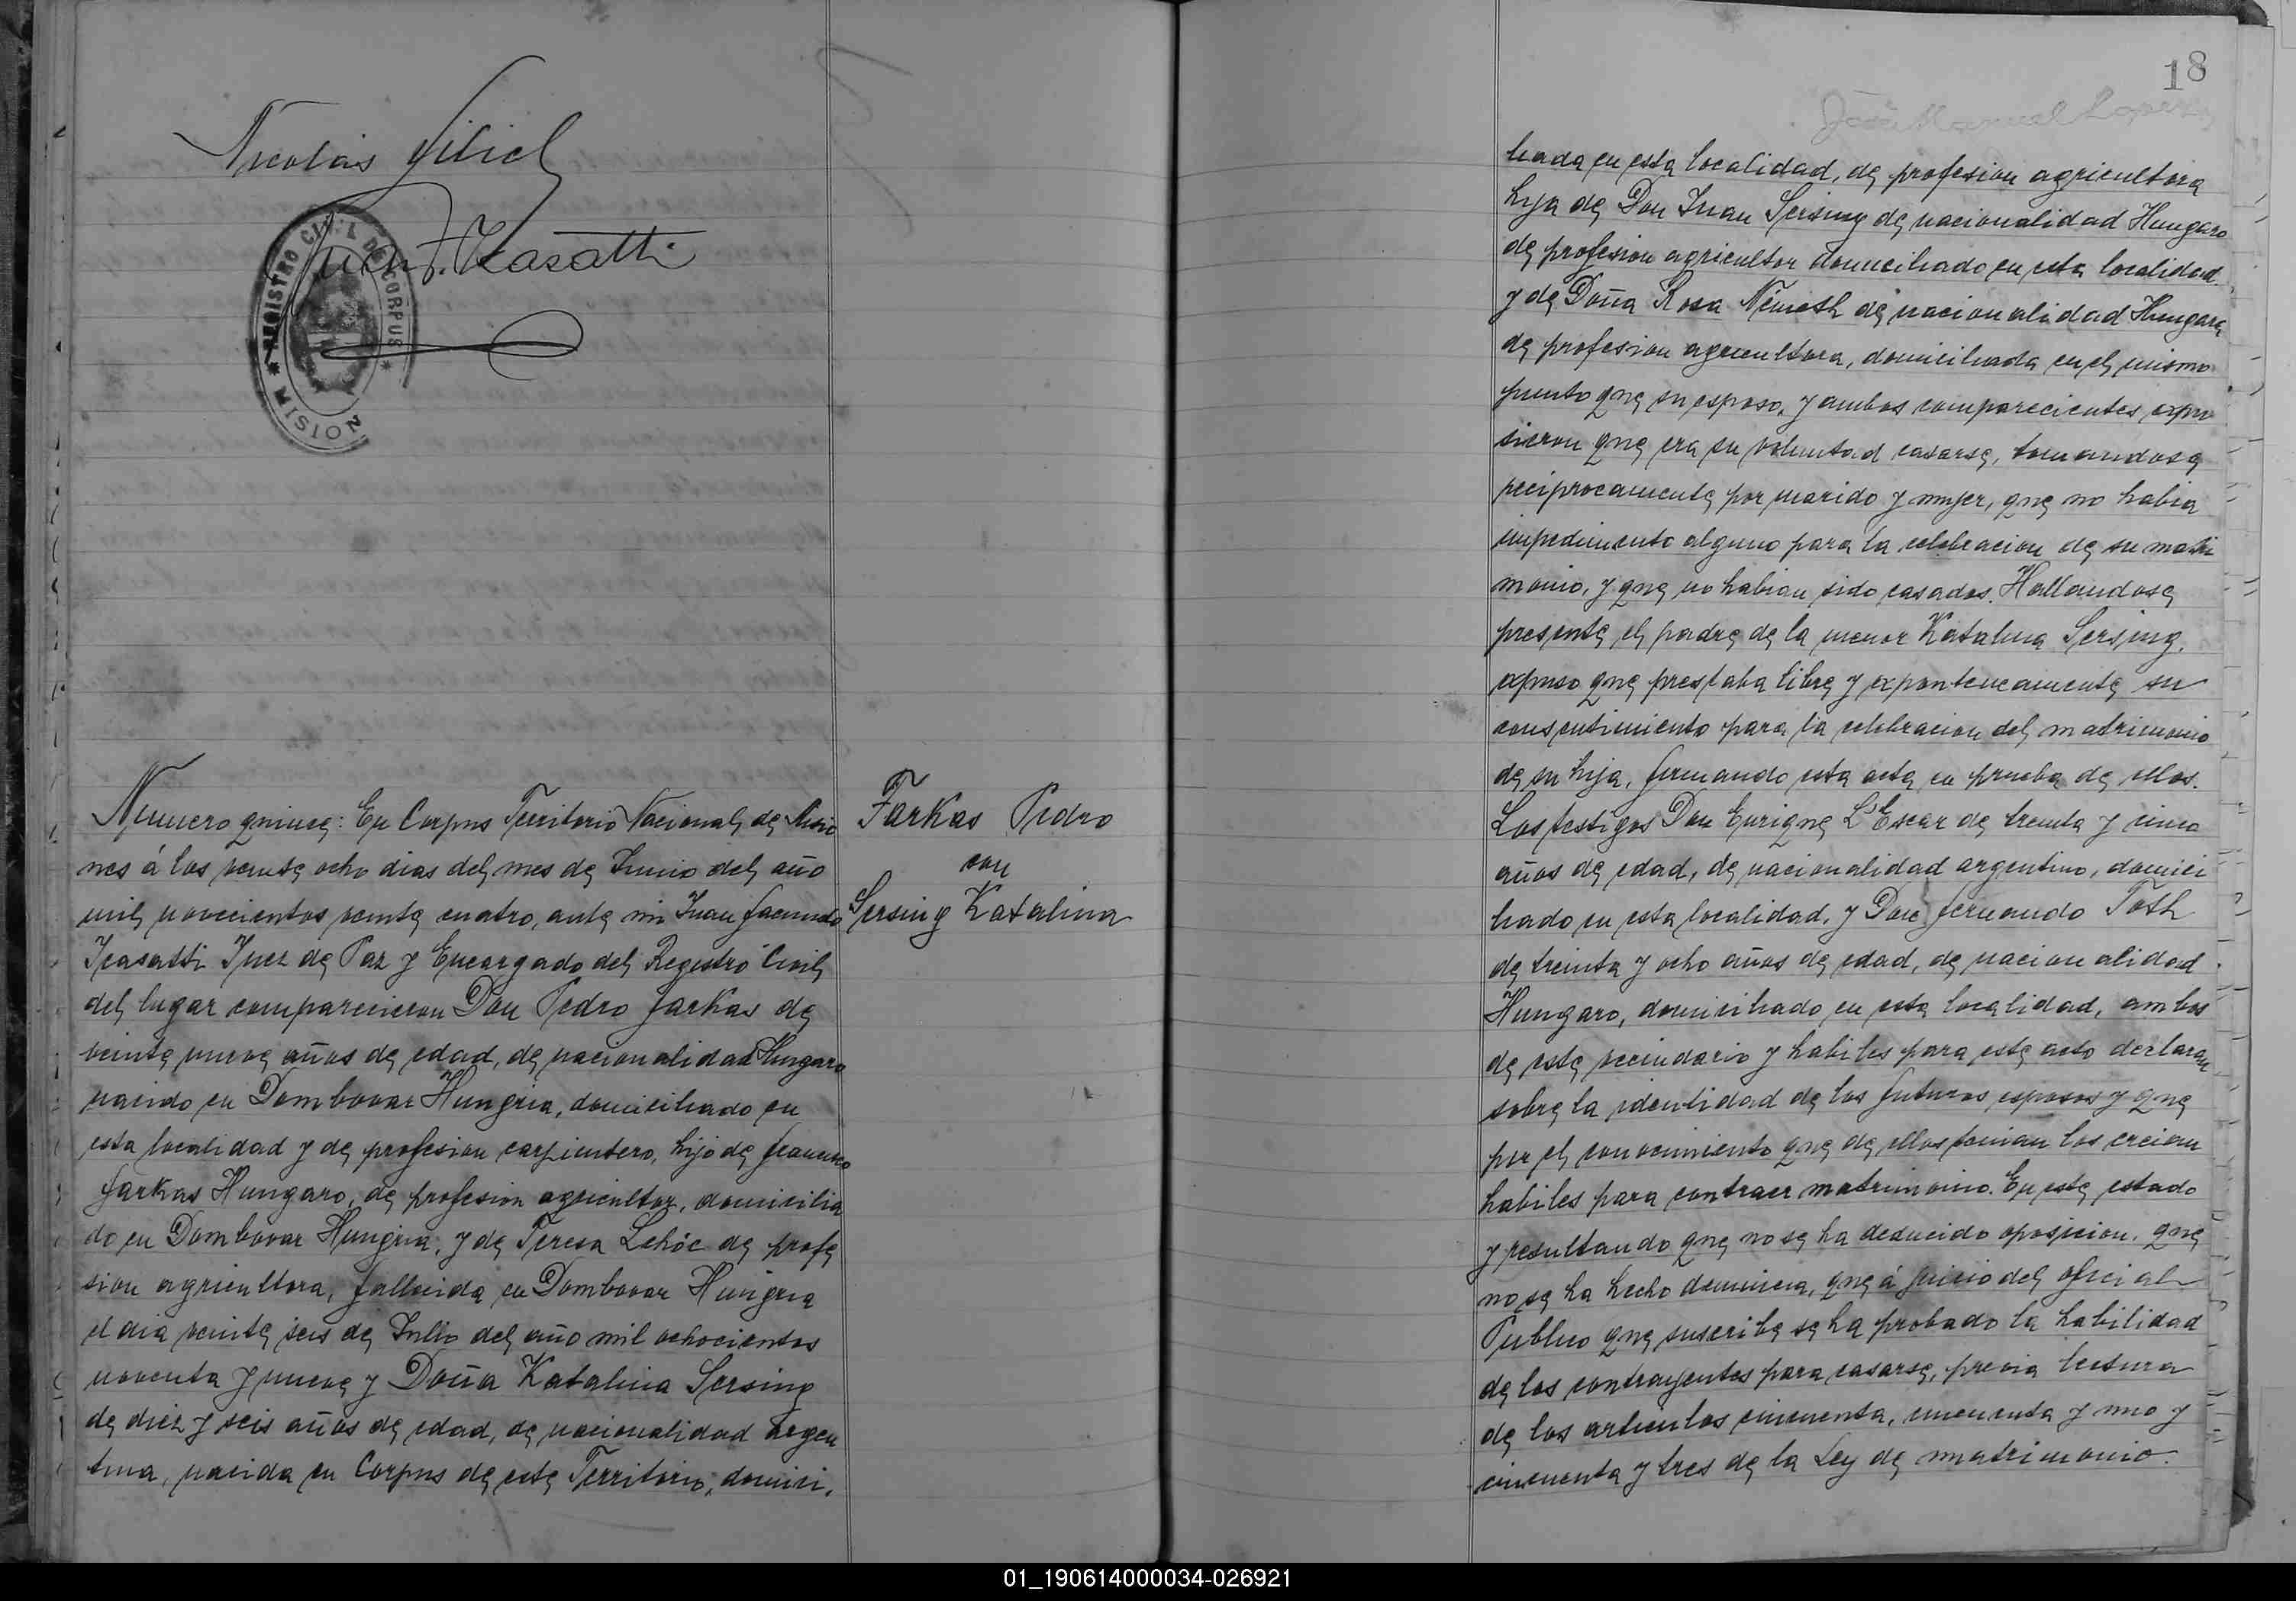 Nicolás
Juan F. Icasatti
REGISTRO CIVIL DE CORPUS * MISIONES *
Numero quince: En Corpus Territorio Nacional de Misio
nes á los veinte ocho dias del mes de Junio del año
mil novecientos veinte cuatro, ante mi Juan Facundo
Icasatti Juez de Paz y Encargado del Registro Civil
del lugar comparecieron Don Pedro Farkas de
veinte nueve años de edad, de nacionalidad Hungara
nacido en Dombovar Hungria, domiciliado en
esta localidad y de profesion carpintero, hijo de Francisco
Farkas Hungaro, de profesion agricultor, domicilia
do en Dombovar Hungria, y de Teresa Lehóc de profe
sion agricultora, fallecida en Dombovar Hungria
el dia veinte seis de Julio del año mil ochocientos
noventa y nueve y Doña Katalina Sersing
de diez y seis años de edad, de nacionalidad argen
tina, nacida en Corpus de este Territorio, domici.
Farkas Pedro
con
Sersing Katalina
18
José Manuel Lopez
liada en esta localidad, de profesion agricultora
hija de Don Juan Sersing de nacionalidad Hungaro
de profesion agricultor domiciliado en esta localidad
y de Doña Rosa Németh de nacionalidad Hungara
de profesion agricultora, domiciliada en el mismo
punto que su esposo, y ambos comparecientes expu
sieron que era su voluntad casarse, tomandose
reciprocamente por marido y mujer, que no habia
impedimento alguno para la celebracion de su matri
monio, y que no habian sido casados. Hallandose
presente el padre de la menor Katalina Sersing,
expuso que prestaba libre y exponteneamente su
consentimiento para la celebracion del matrimonio
de su hija, firmando esta acta en prueba de ellos.
Los testigos Don Enrique L'Escar de treinta y cinco
años de edad, de nacionalidad argentino, domici
liado en esta localidad, y Don Fernando Toth
de treinta y ocho años de edad, de nacionalidad
Hungaro, domiciliado en esta localidad, ambos
de este vecindario y habiles para este acto declaran
sobre la identidad de los futuros esposos y que
por el conocimiento que de ellos tenian los creian
habiles para contraer matrimonio. En este estado
y resultando que no se ha deducido oposicion, que
no se ha hecho denuncia, que á juicio del oficial
Publico que suscribe se ha probado la habilidad
de los contrayentes para casarse, previa lectura
de los articulos cincuenta, cincuenta y uno y
cincuenta y tres de la Ley de matrimonio.
01_190614000034-026921